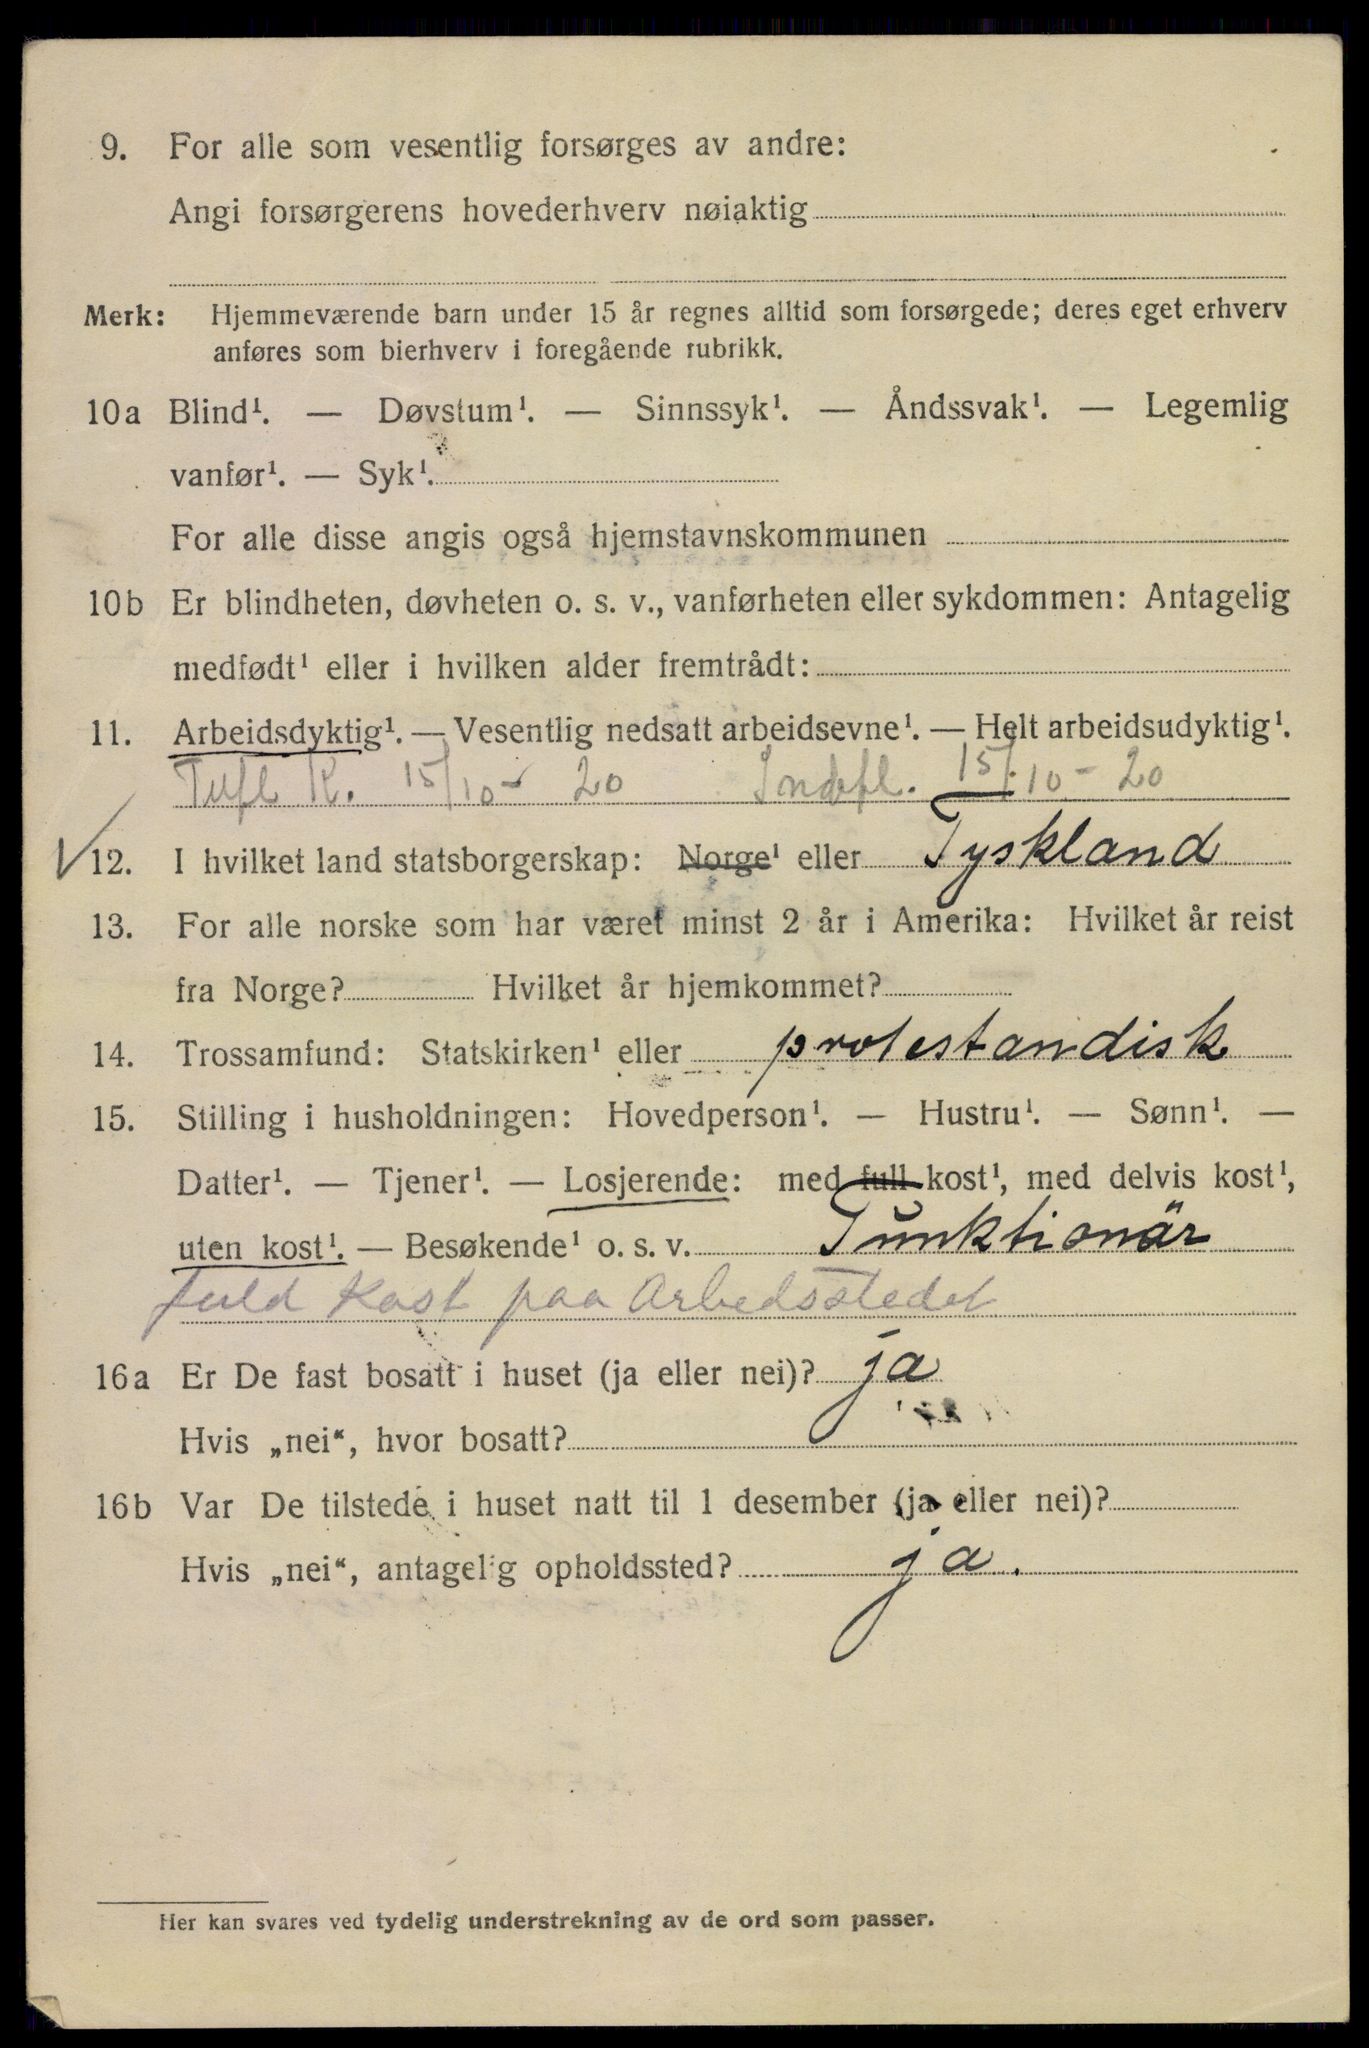 9. For alle som vesentlig forsørges av andre:
Angi forsørgerens hovederhverv nøiaktig
Merk: Hjemmeværende barn under 15 år regnes alltid som forsørgede; deres eget erhverv
anføres som bierhverv i foregående rubrikk.
10a Blind¹. — Døvstum¹. — Sinnssyk¹. — Åndssvak¹. — Legemlig
vanfør¹. — Syk¹.
For alle disse angis også hjemstavnskommunen
10b Er blindheten, døvheten o. s. v., vanførheten eller sykdommen: Antagelig
medfødt¹ eller i hvilken alder fremtrådt:
11. Arbeidsdyktig¹. — Vesentlig nedsatt arbeidsevne¹. — Helt arbeidsudyktig¹.
K. 15/10 - 20 Indfl. 15/10 - 20
12. I hvilket land statsborgerskap: Norge¹ eller Tyskland
13. For alle norske som har været minst 2 år i Amerika: Hvilket år reist
fra Norge? Hvilket år hjemkommet?
14. Trossamfund: Statskirken¹ eller protestandisk
15. Stilling i husholdningen: Hovedperson¹. — Hustru¹. — Sønn¹. —
Datter¹. — Tjener¹. — Losjerende: med full kost¹, med delvis kost¹,
uten kost¹. — Besøkende¹ o. s. v. Funktionär
fuld Kost paa Arbedsstedet
16a Er De fast bosatt i huset (ja eller nei)? ja
Hvis „nei“, hvor bosatt?
16b Var De tilstede i huset natt til 1 desember (ja eller nei)?
Hvis „nei“, antagelig opholdssted? ja.
Her kan svares ved tydelig understrekning av de ord som passer.